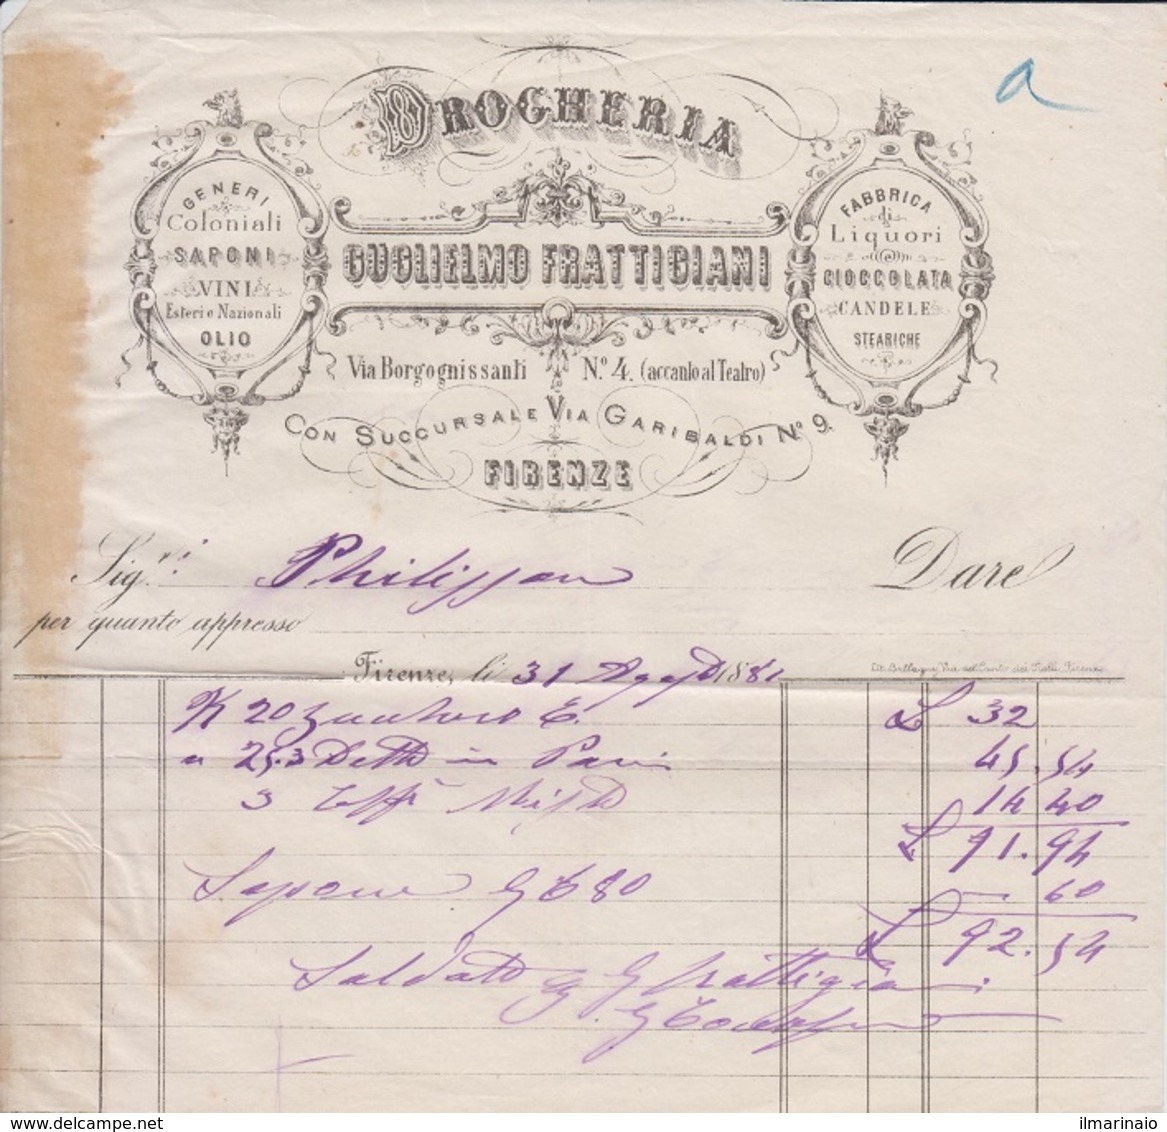 a
DROGHERIA
GUGLIELMO FRATTIGIANI
GENERI
Coloniali
SAPONI
VINI
Esteri e Nazionali
OLIO
FABBRICA
di
Liquori
CIOCCOLATA
CANDELE
STEARICHE
Via Borgognissanti Nº 4. (accanto al Teatro)
CON SUCCURSALE VIA GARIBALDI Nº 9.
FIRENZE
Sig.ri Philipson Dare
per quanto appresso
Firenze, li 31 Agosto 1881
Lit. Via del Canto dei Nelli Firenze
K 20 Zucchero £ 32
" 25.3 Detto in Pani 45.54
3 Caffè Misto 14 40
£ 91.94
Sapone 80 — 60
£ 92.54
Saldato G Frattigiani